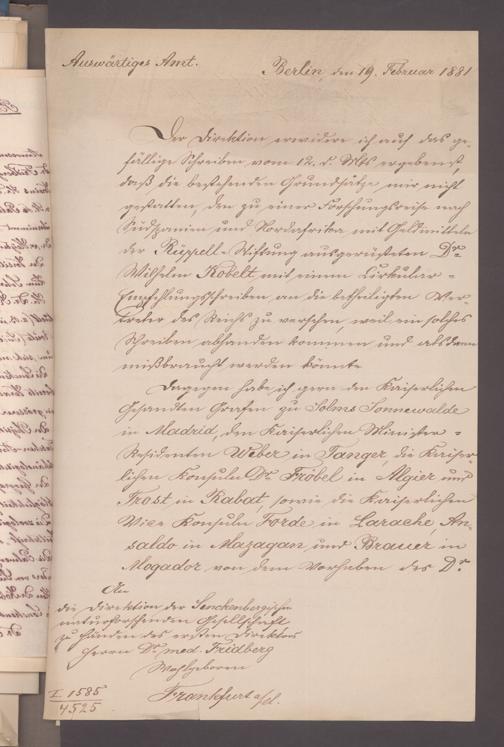 Auswärtiges Amt.
Berlin, den 19. Februar 1881
Der Direktion erwidere ich auf das ge-
fällige Schreiben vom 12. d. Mts ergebenst,
daß die bestehenden Grundsätze mir nicht
gestatten, den zu einer Forschungsreise nach
Südspanien und Nordafrika mit Geldmitteln
der Rüppell-Stiftung ausgerüsteten Dr.
Wilhelm Kobelt mit einem Cirkular-
Empfehlungsschreiben an die betheiligten Ver-
treter des Reichs zu versehen, weil ein solches
Schreiben abhanden kommen und alsdann
mißbraucht werden könnte.
Dagegen habe ich gern den Kaiserlichen
Gesandten Grafen zu Solms Sonnewalde
in Madrid, den Kaiserlichen Minister-
Residenten Weber in Tanger, die Kaiser-
lichen Konsuln Dr. Fröbel in Algier und
Frost in Rabat, sowie die Kaiserlichen
Vice Konsuln Forde in Larache, An-
saldo in Mazagan und Brauer in
Mogador von dem Vorhaben des Dr.
An
die Direktion der Senckenbergischen
naturforschenden Gesellschaft
zu Händen des ersten Direktors
Herrn Dr. med. Fridberg
Wohlgeboren
Frankfurt a/M.
I 1585
4525